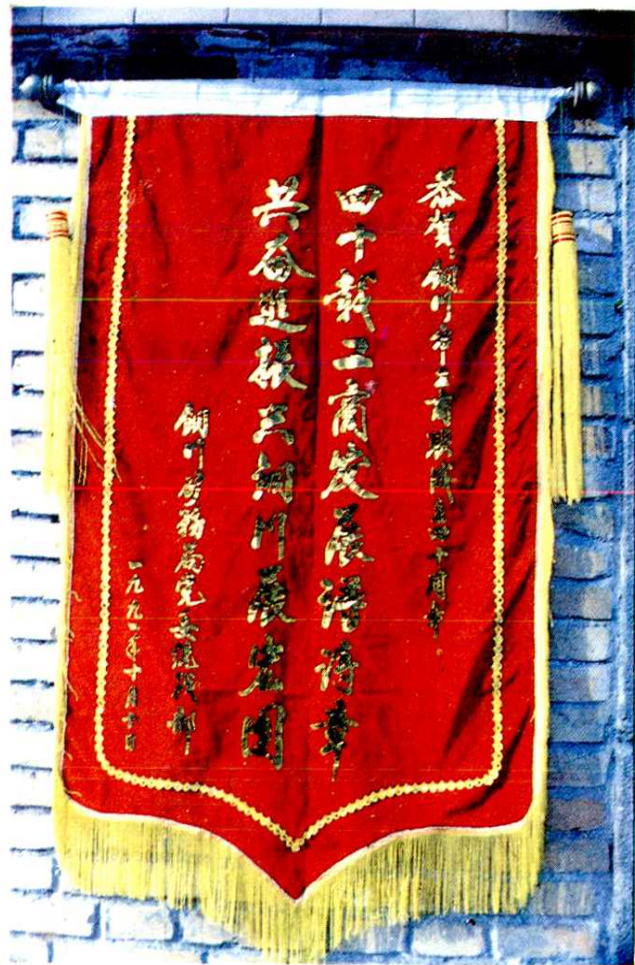 恭贺：铜川市工商联成立四十周年
四十载工商发展谱诗章
共奋进振兴铜川展宏图
铜川务局党委统战部
一九九一年十月十日